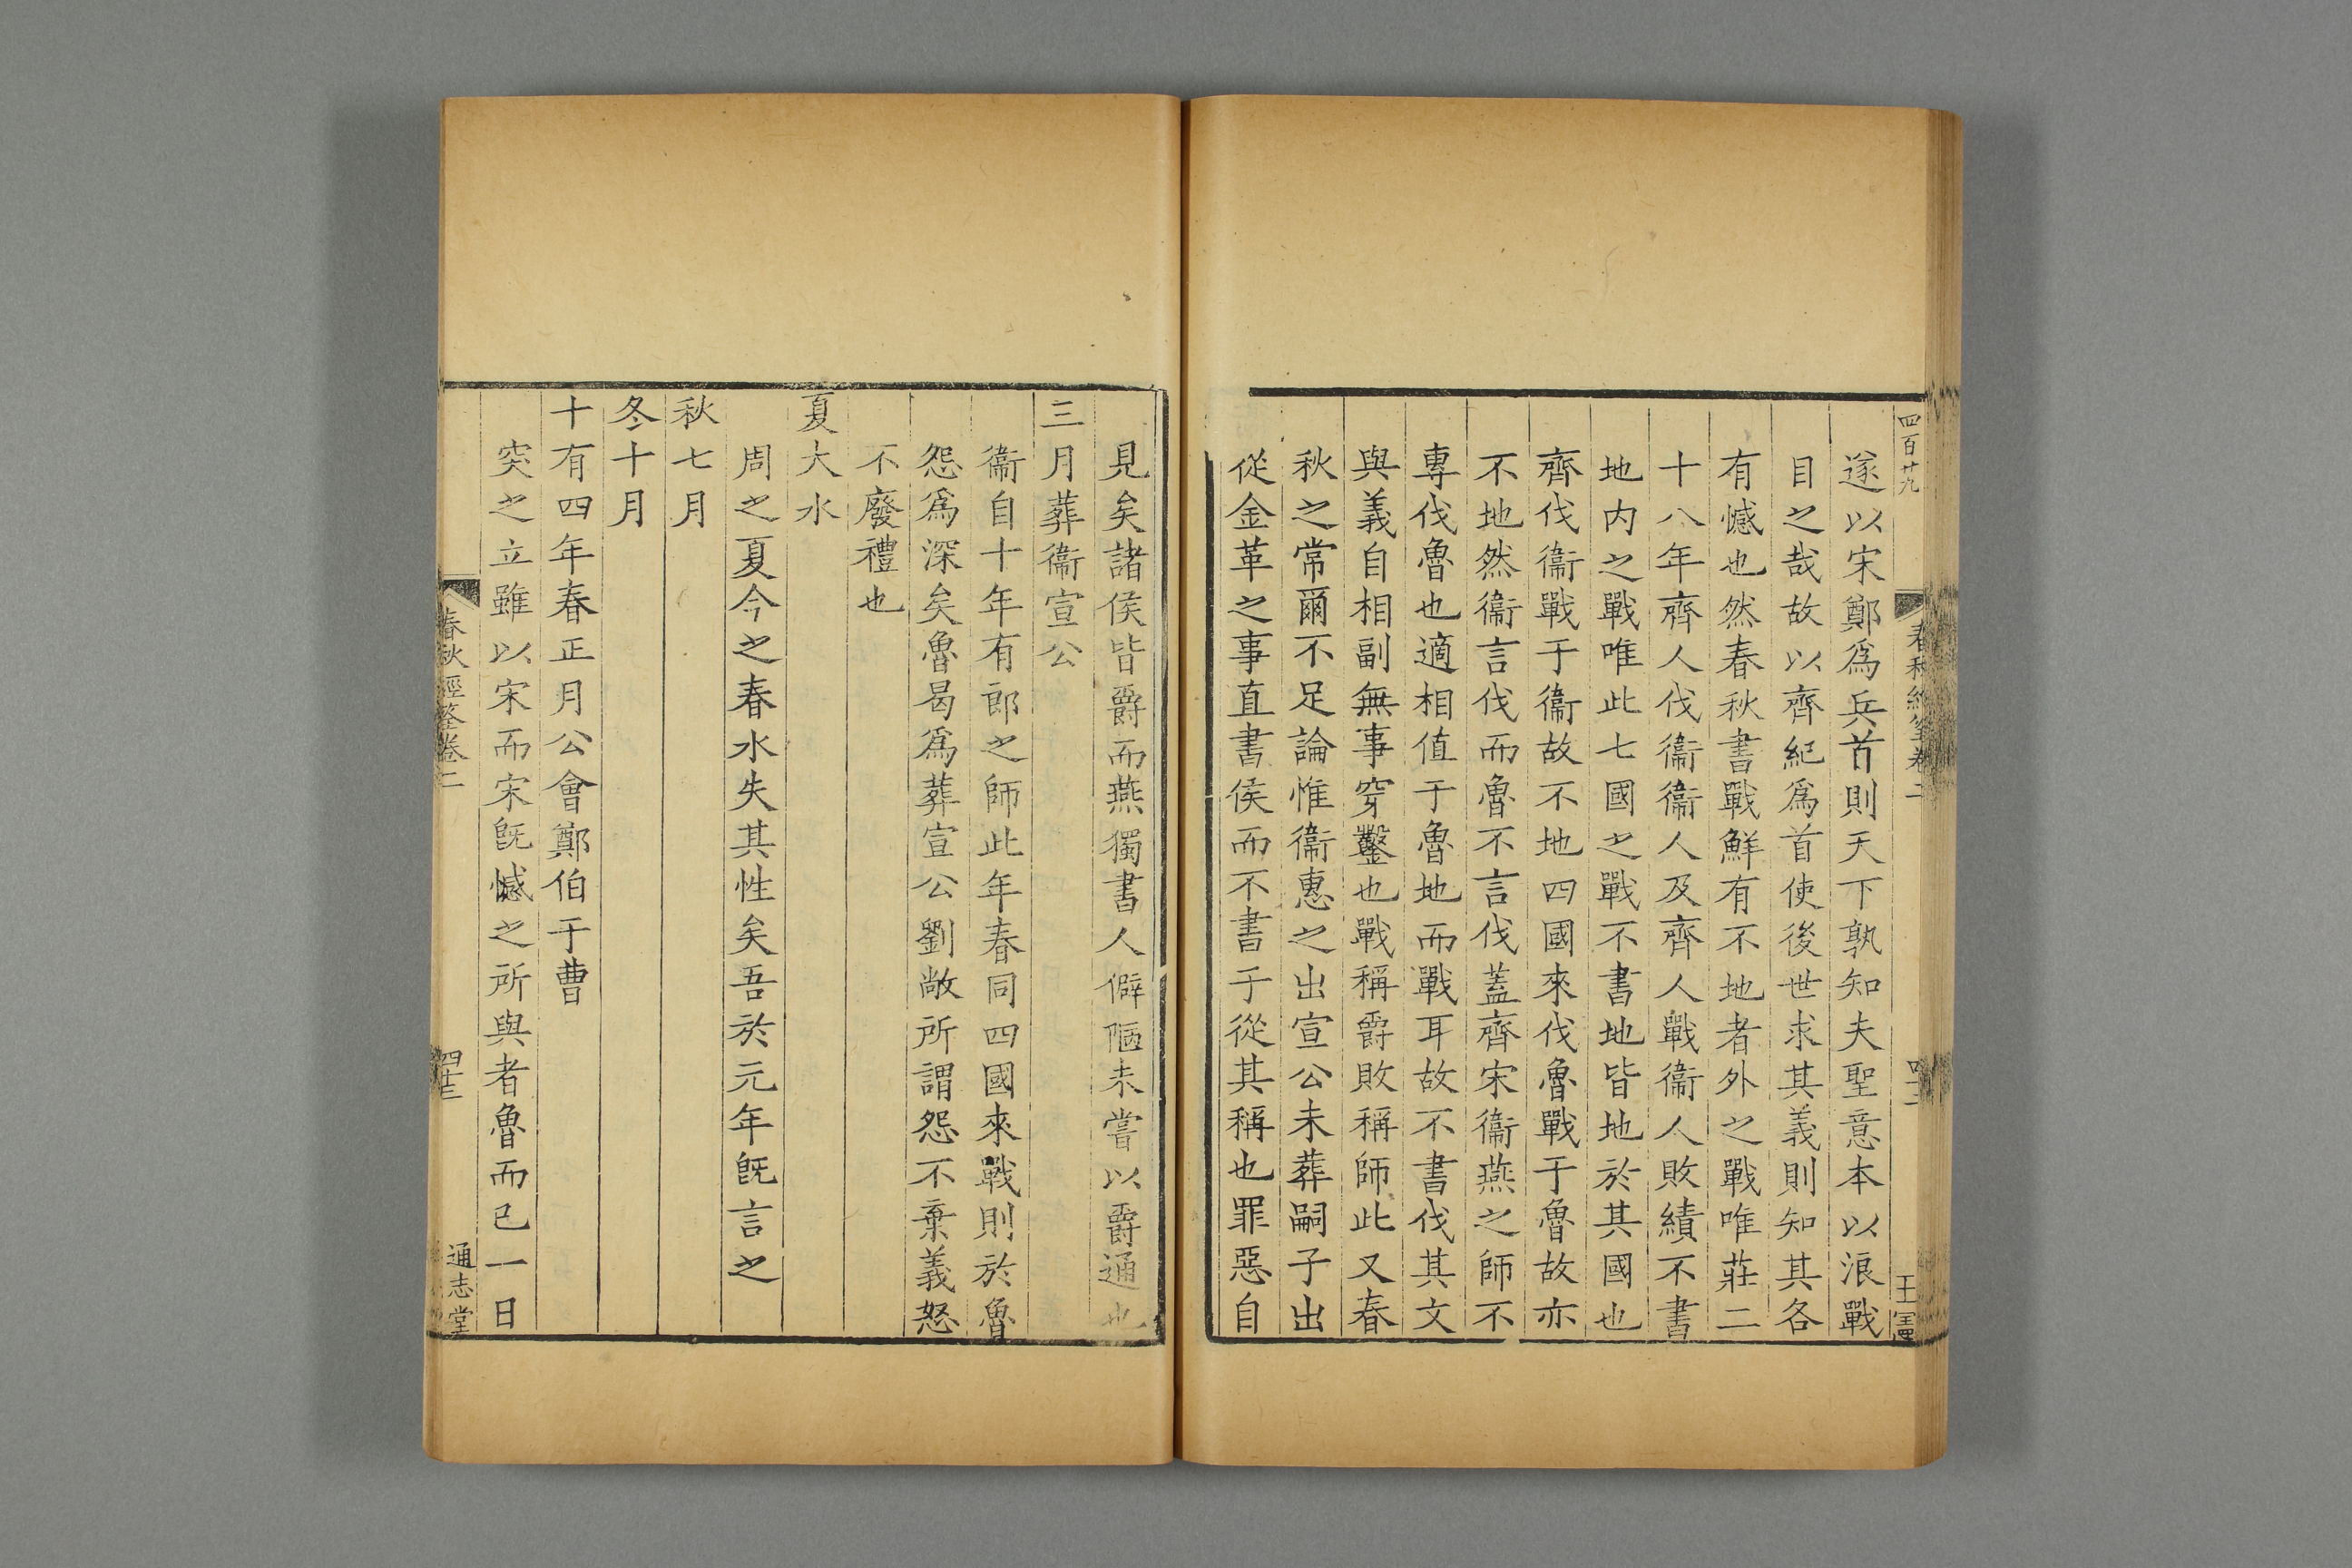 四百廿九
遂以宋鄭爲兵首則天下孰知夫聖意本以浪戰
目之哉故以齊紀爲首使後世求其義則知其各
有憾也然春秋書戰鮮有不地者外之戰唯莊二
十八年齊人伐衞衞人及齊人戰衞人敗績不書
地内之戰唯此七國之戰不書地皆地於其國也
齊伐衞戰于衞故不地四國來伐魯戰于魯故亦
不地然衞言伐而魯不言伐蓋齊宋衞燕之師不
專伐魯也適相值于魯地而戰耳故不書伐其文
與義自相副無事穿鑿也戰稱爵敗稱師此又春
秋之常爾不足論惟衞惠之出宣公未葬嗣子出
從金革之事直書侯而不書子從其稱也罪惡自
見矣諸侯皆爵而燕獨書人僻陋未嘗以爵通也
三月葬衞宣公
衞自十年有郎之師此年春同四國來戰則於魯
怨爲深矣魯曷爲葬宣公劉敞所謂怨不棄義怒
不廢禮也
夏大水
周之夏今之春水失其性矣吾於元年旣言之
秋七月
冬十月
十有四年春正月公會鄭伯于曹
突之立雖以宋而宋旣憾之所與者魯而已一日
春秋經筌卷二
通志堂